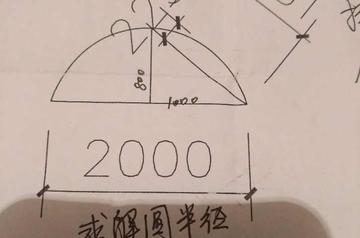 800
1000
2000
求解圆半径